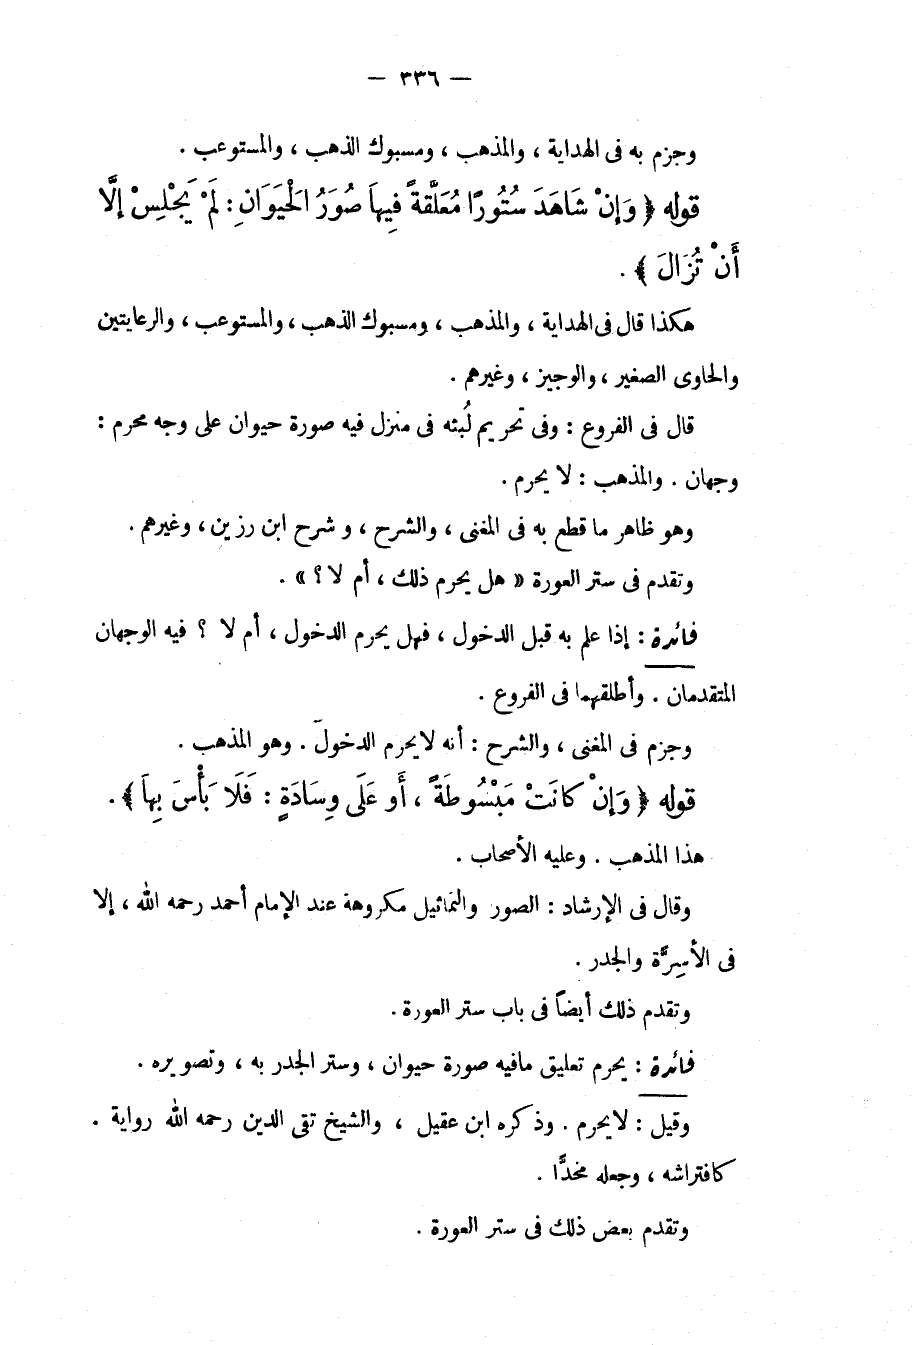 — ٣٣٦ —
وجزم به فى الهداية ، والمذهب ، ومسبوك الذهب ، والمستوعب .
قوله ﴿ وَإِنْ شَاهَدَ سُتُورًا مُعَلَّقَةً فِيهَا صُوَرُ الْحَيَوَانِ : لَمْ يَجْلِسْ إِلَّا
أَنْ تُزَالَ ﴾ .
هكذا قال فى الهداية ، والمذهب ، ومسبوك الذهب ، والمستوعب ، والرعايتين
والحاوى الصغير ، والوجيز ، وغيرهم .
قال فى الفروع : وفى تحريم لُبثه فى منزل فيه صورة حيوان على وجه محرم :
وجهان . والمذهب : لا يحرم .
وهو ظاهر ما قطع به فى المغنى ، والشرح ، و شرح ابن رزين ، وغيرهم .
وتقدم فى ستر العورة « هل يحرم ذلك ، أم لا ؟ » .
فائدة : إذا علم به قبل الدخول ، فهل يحرم الدخول ، أم لا ؟ فيه الوجهان
المتقدمان . وأطلقهما فى الفروع .
وجزم فى المغنى ، والشرح : أنه لا يحرم الدخول . وهو المذهب .
قوله ﴿ وَإِنْ كَانَتْ مَبْسُوطَةً ، أَو عَلَى وِسَادَةٍ : فَلَا بَأْسَ بِهَا ﴾ .
هذا المذهب . وعليه الأصحاب .
وقال فى الإرشاد : الصور والتماثيل مكروهة عند الإمام أحمد رحمه الله ، إلا
فى الأسِرَّة والجدر .
وتقدم ذلك أيضاً فى باب ستر العورة .
فائدة : يحرم تعليق مافيه صورة حيوان ، وستر الجدر به ، وتصويره .
وقيل : لا يحرم . وذكره ابن عقيل ، والشيخ تقى الدين رحمه الله رواية .
كافتراشه ، وجعله مخدًّا .
وتقدم بعض ذلك فى ستر العورة .